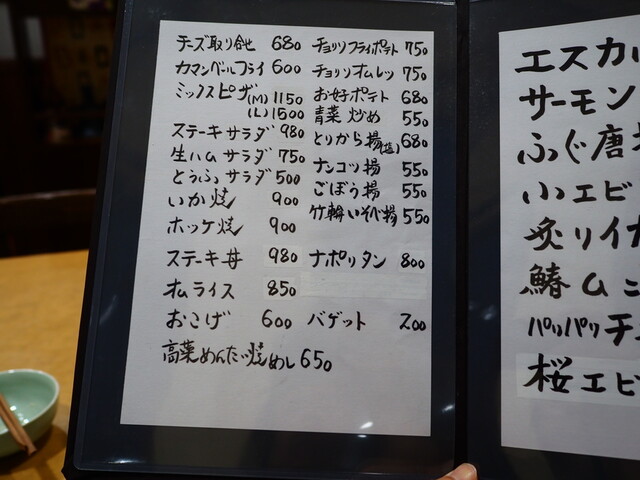 チーズ取り合せ 680
カマンベールフライ 600
ミックスピザ (M) 1150
(L) 1500
ステーキサラダ 980
生ハムサラダ 750
とうふサラダ 500
いか焼 900
ホッケ焼 900
ステーキ丼 980
オムライス 850
おこげ 600
高菜めんたい焼めし 650
チョリソフライポテト 750
チョリソオムレツ 750
お好ポテト 680
青菜炒め 550
とりから揚(塩) 680
ナンコツ揚 550
ごぼう揚 550
竹輪いそべ揚 550
ナポリタン 800
バゲット 200
エスカル
サーモン
ふぐ唐揚
小エビ
炙りイカ
鰆ムニ
パリパリチ
桜エビ